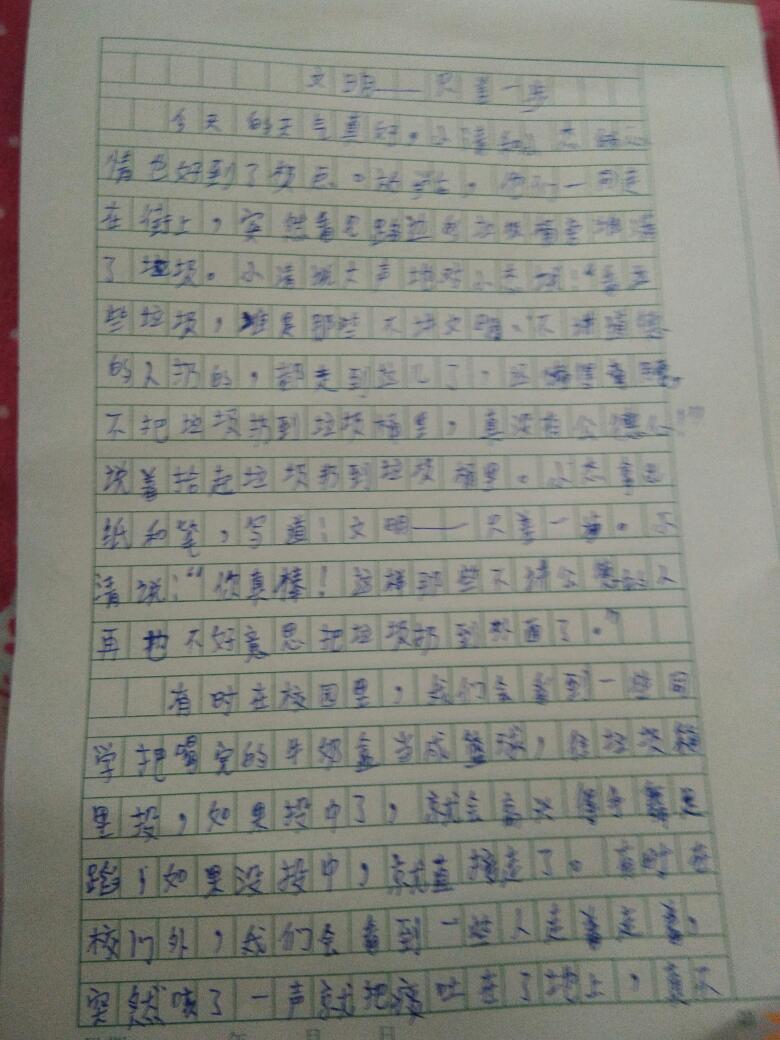 文明——只差一步
今天的天气真好，小清和小杰的心
情也好到了极点。放学后，他们一同走
在街上，突然看见路边的垃圾桶里堆满
了垃圾。小清就大声地对小杰说：“看这
些垃圾，准是那些不讲文明、不讲道德
的人扔的，都走到这儿了，还
不把垃圾扔到垃圾桶里，真没有公德心！”
说着拾起垃圾扔到垃圾桶里。小杰拿出
纸和笔，写道：文明——只差一步。小
清说：“你真棒！这样那些不讲公德的人
再也不好意思把垃圾扔到外面了。”
有时在校园里，我们会看到一些同
学把喝完的牛奶盒当成篮球，往垃圾箱
里投，如果投中了，就会高兴得手舞足
蹈；如果没投中，就直接走了。有时在
校门外，我们会看到一些人走着走着，
突然咳了一声就把痰吐在了地上，真不
年 月 日